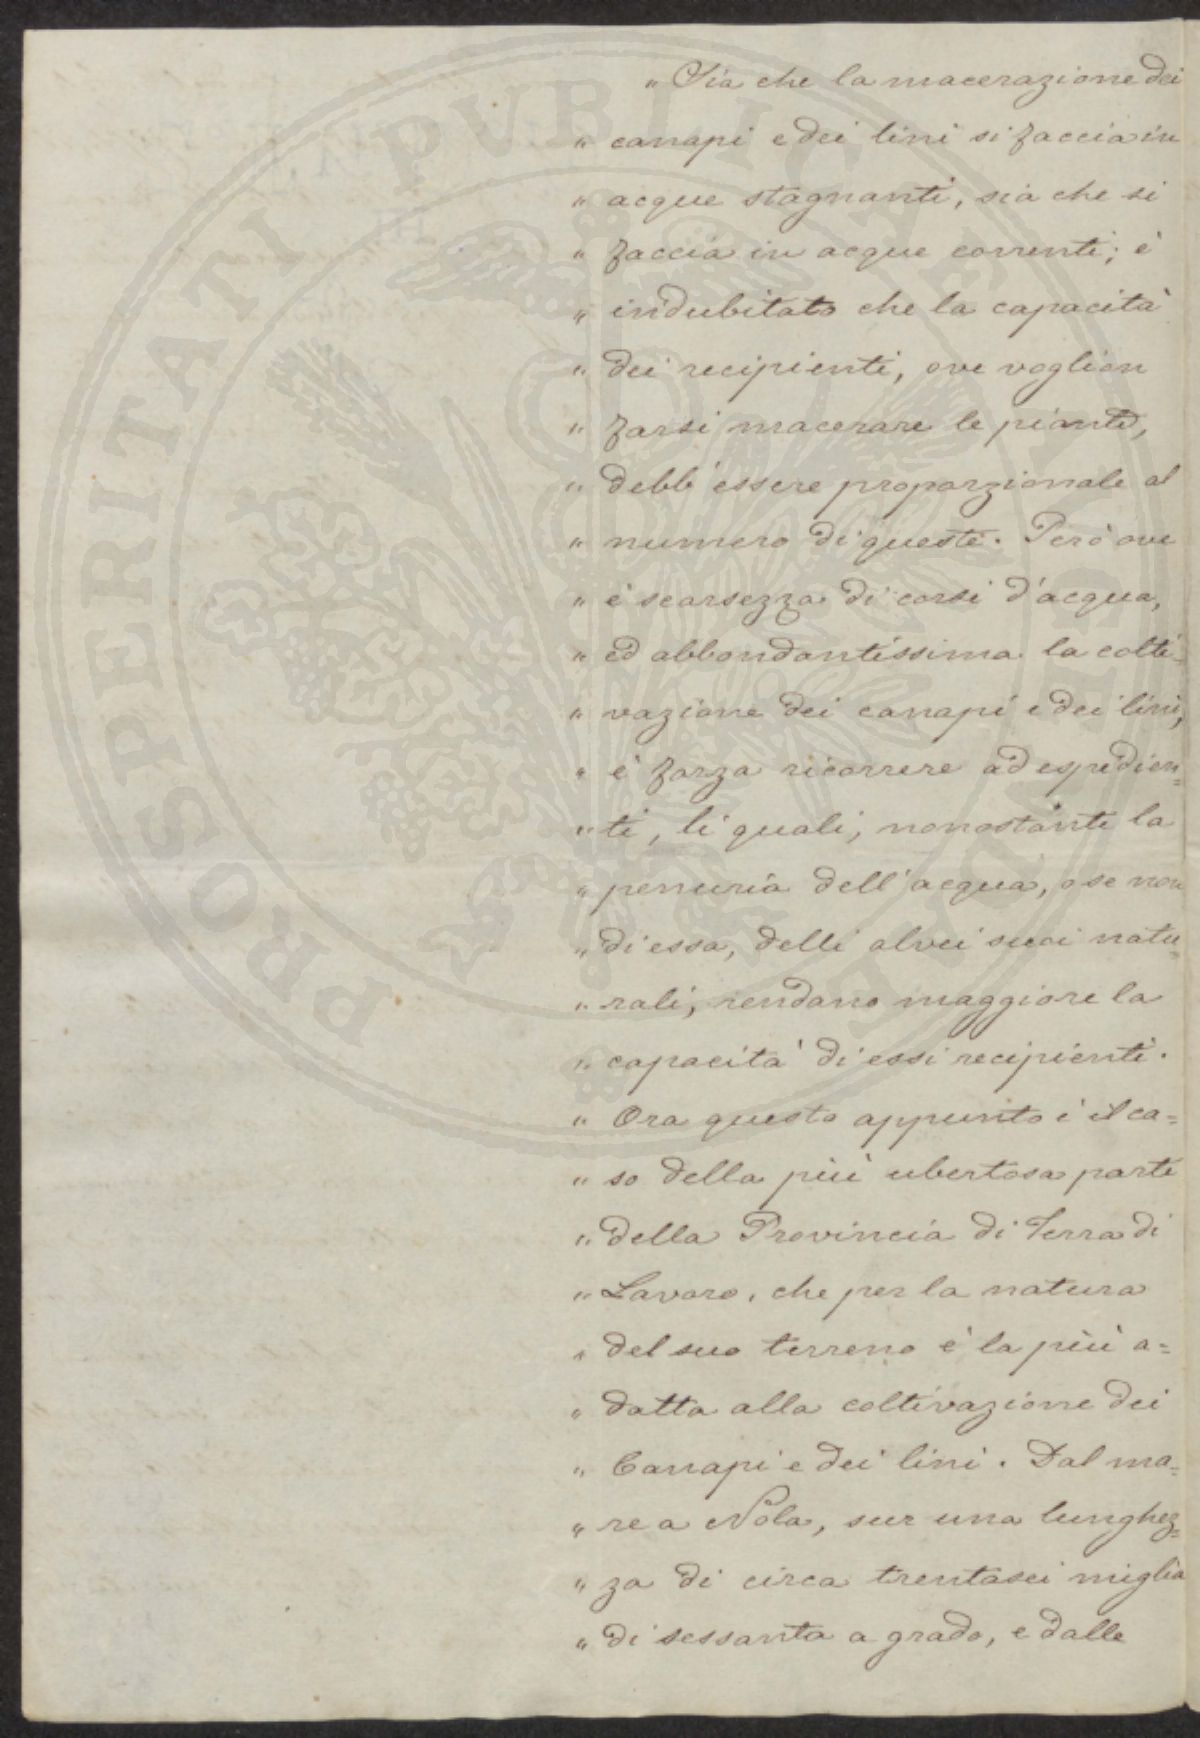 „ Sia che la macerazione dei
„ canapi e dei lini si faccia in
„ acque stagnanti, sia che si
„ faccia in acque correnti; è
„ indubitato che la capacità
„ dei recipienti, ove voglion
„ farsi macerare le piante,
„ debb'essere proporzionale al
„ numero di queste. Però ove
„ è scarsezza di corsi d'acqua,
„ ed abbondantissima la colti-
„ vazione dei canapi e dei lini,
„ è forza ricorrere ad espedien=
„ ti, li quali, nonostante la
„ penuria dell'acqua, o se non
„ di essa, delli alvei suoi natu
„ rali, rendano maggiore la
„ capacità di essi recipienti.
„ Ora questo appunto è il ca=
„ so della più ubertosa parte
„ della Provincia di Terra di
„ Lavoro, che per la natura
„ del suo terreno è la più a=
„ datta alla coltivazione dei
„ Canapi e dei lini. Dal ma=
„ re a Nola, sur una lunghez=
„ za di circa trentasei miglia
„ di sessanta a grado, e dalle
PROSPERITATI PVBLICAE AVGENDAE